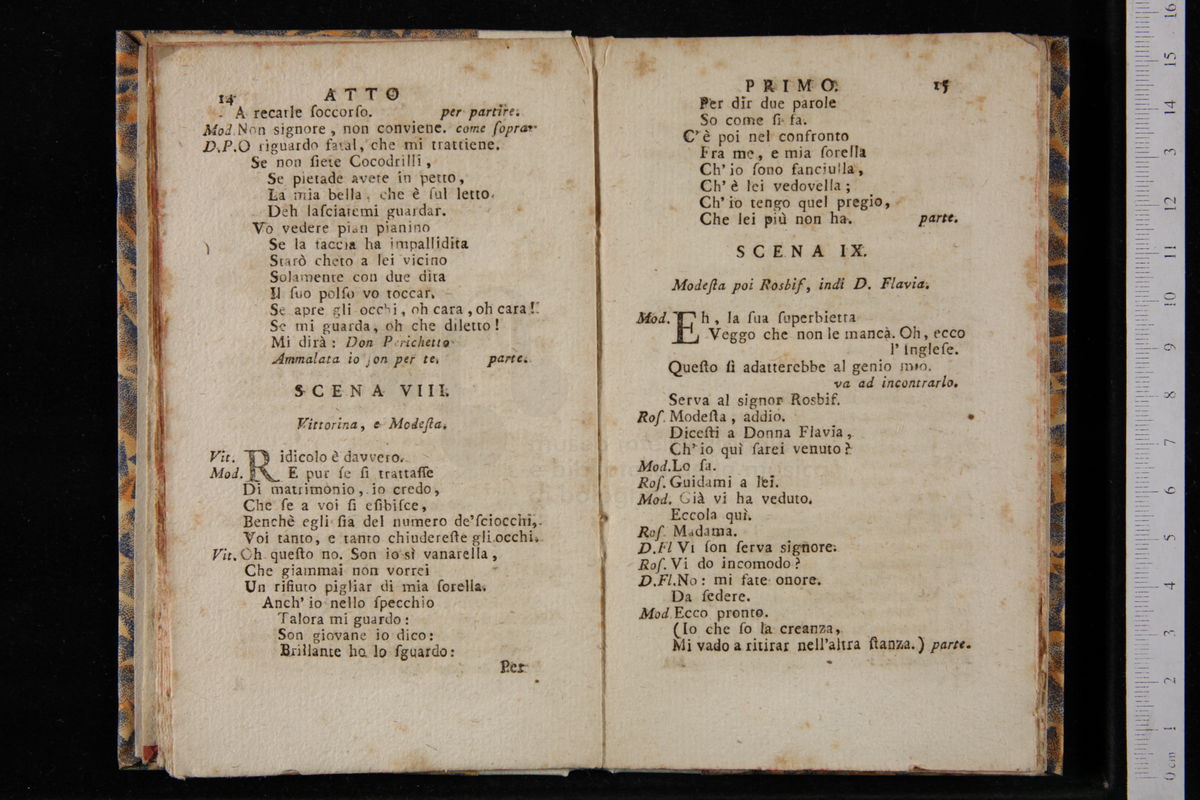 14 ATTO
A recarle ſoccorſo. per partire.
Mod. Non signore, non conviene. come ſopra.
D.P. O riguardo fatal, che mi trattiene.
Se non ſiete Cocodrilli,
Se pietade avete in petto,
La mia bella, che è ſul letto.
Deh laſciatemi guardar.
Vo vedere pian pianino
Se la taccia ha impallidita
Starò cheto a lei vicino
Solamente con due dita
Il ſuo polſo vo toccar.
Se apre gli occhi, oh cara, oh cara!
Se mi guarda, oh che diletto!
Mi dirà: Don Perichetto
Ammalata io ſon per te. parte.
SCENA VIII.
Vittorina, e Modeſta.
Vit. Ridicolo è davvero.
Mod. E pur ſe ſi trattaſſe
Di matrimonio, io credo,
Che ſe a voi ſi eſibiſce,
Benchè egli ſia del numero de'ſciocchi,
Voi tanto, e tanto chiudereſte gli occhi.
Vit. Oh queſto no. Son io sì vanarella,
Che giammai non vorrei
Un rifiuto pigliar di mia ſorella.
Anch' io nello ſpecchio
Talora mi guardo:
Son giovane io dico:
Brillante ho lo ſguardo:
Per
PRIMO. 15
Per dir due parole
So come ſi fa.
C'è poi nel confronto
Fra me, e mia ſorella
Ch' io ſono fanciulla,
Ch' è lei vedovella;
Ch' io tengo quel pregio,
Che lei più non ha. parte.
SCENA IX.
Modeſta poi Rosbif, indi D. Flavia.
Mod. Eh, la ſua ſuperbietta
Veggo che non le manca. Oh, ecco
l' Ingleſe.
Queſto ſi adatterebbe al genio mio.
va ad incontrarlo.
Serva al signor Rosbif.
Roſ. Modeſta, addio.
Diceſti a Donna Flavia,
Ch' io quì ſarei venuto?
Mod. Lo ſa.
Roſ. Guidami a lei.
Mod. Già vi ha veduto.
Eccola quì.
Roſ. Madama.
D.Fl. Vi ſon ſerva signore.
Roſ. Vi do incomodo?
D.Fl. No: mi fate onore.
Da ſedere.
Mod. Ecco pronto.
(Io che ſo la creanza,
Mi vado a ritirar nell'altra ſtanza.) parte.